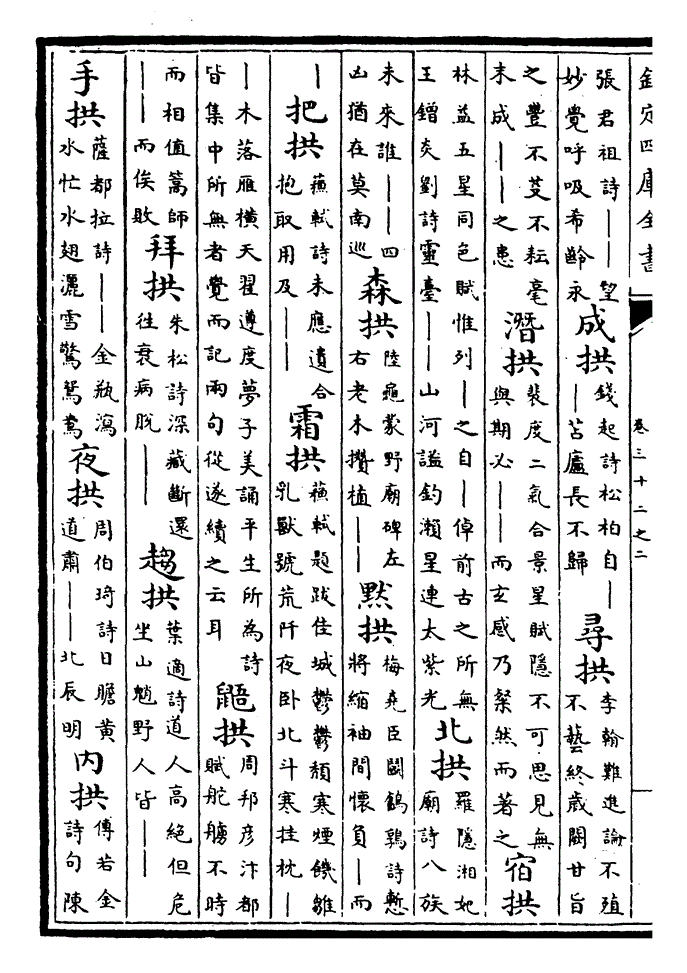 欽定四庫全書 卷三十二之二
張君祖詩――望妙覺呼吸希齡永 成拱 錢起詩松柏自――苫廬長不歸 尋拱 李翰難進論不殖不藝終歲闕甘旨
之豐不芟不耘毫末成――之患 潛拱 裴度二氣合景星賦隱不可思見無與期必――而玄感乃粲然而著之 宿拱
林益五星同色賦惟列―之自―倬前古之所無王鏳炎劉詩靈臺――山河謐釣瀨星連太紫光 北拱 羅隱湘妃廟詩八族
未來誰――四凶猶在莫南巡 森拱 陸龜蒙野廟碑左右老木攢植―― 默拱 梅堯臣闘鵪鶉詩慙將縮袖間懷負―而
― 把拱 蘇軾詩未應遺合抱取用及―― 霜拱 蘇軾題跋佳城鬱鬱頽寒煙饑雛乳獸號荒阡夜卧北斗寒挂枕―
―木落雁橫天翟遵度夢子美誦平生所為詩皆集中所無者覺而記兩句從遂續之云耳 鼯拱 周邦彥汴都賦舵艣不時
而相值篙師――而俟敗 拜拱 朱松詩深藏斷還往衰病脫―― 趨拱 葉適詩道人高絕但危坐山魈野人皆――
手拱 薩都拉詩――金瓶瀉水忙水翅灑雪驚鴛鴦 夜拱 周伯琦詩日瞻黄道肅――北辰明 內拱 傅若金詩句陳